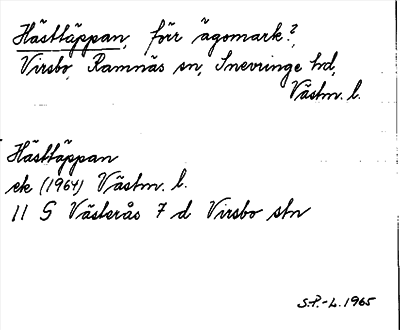 Hästtäppan, förr ägomark?,
Virsbo, Ramnäs sn, Snevringe hd,
Västm. l.
Hästtäppan
ek (1964) Västm. l.
11 G Västerås 7 d Virsbo stn
S.P.-L. 1965